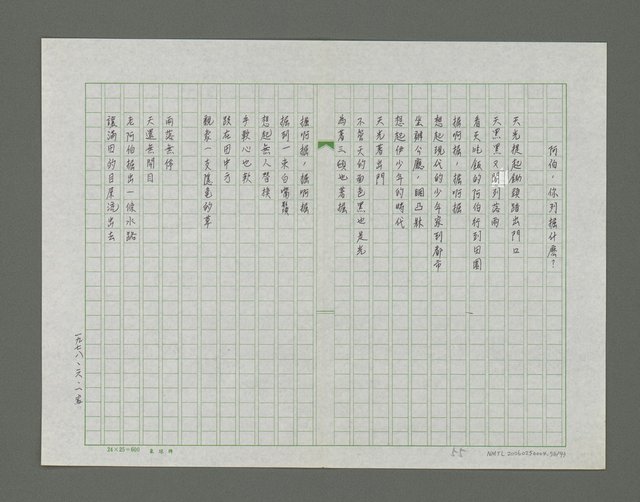 阿伯，你列掘什麼？
天光提起鋤頭踏出門口
天黑黑又閣列落雨
看天吃飯的阿伯行到田園
掘啊掘，掘啊掘
想起現代的少年家到都市
坐辦公廳，睏凸牀
想起伊少年的時代
天光著出門
不管天的面色黑也是光
為著三頓也著掘
掘啊掘，掘啊掘
掘到一朵白嘴鬚
想起無人替換
手軟心也軟
跌在田中央
親像一支隱龜的草
雨落無停
天還無開目
老阿伯掘出一條水路
讓滿田的目屎流出去
一九七八、六、八
24×25=600
55
NMTL20060250004.58/94